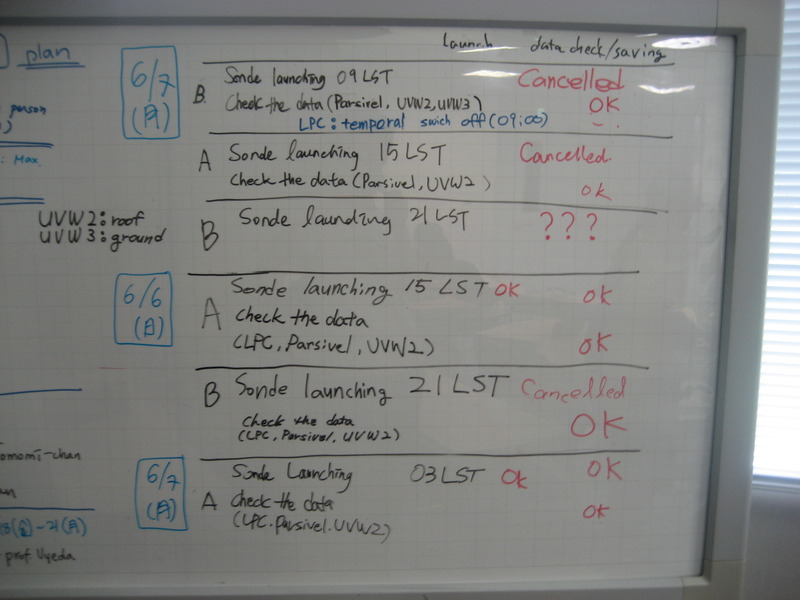 plan
launch data check/saving
6/7
(月)
B. Sonde launching 09 LST Cancelled
Check the data (Parsivel, UVW2, UVW3) OK
LPC: temporal swich off (09:00)
person
: Max.
A Sonde launching 15 LST Cancelled.
Check the data (Parsivel, UVW2) OK
UVW2: roof
UVW3: ground
B Sonde launding 21 LST ???
6/6
(日)
A Sonde launching 15 LST OK OK
Check the data
(LPC, Parsivel, UVW2) OK
B Sonde launching 21 LST Cancelled
Check the data OK
(LPC, Parsivel, UVW2)
6/7
(月)
A Sonde Launching 03 LST Ok OK
Check the data OK
(LPC. Parsivel. UVW2)
omomi-chan
-21(月)
- prof Uyeda